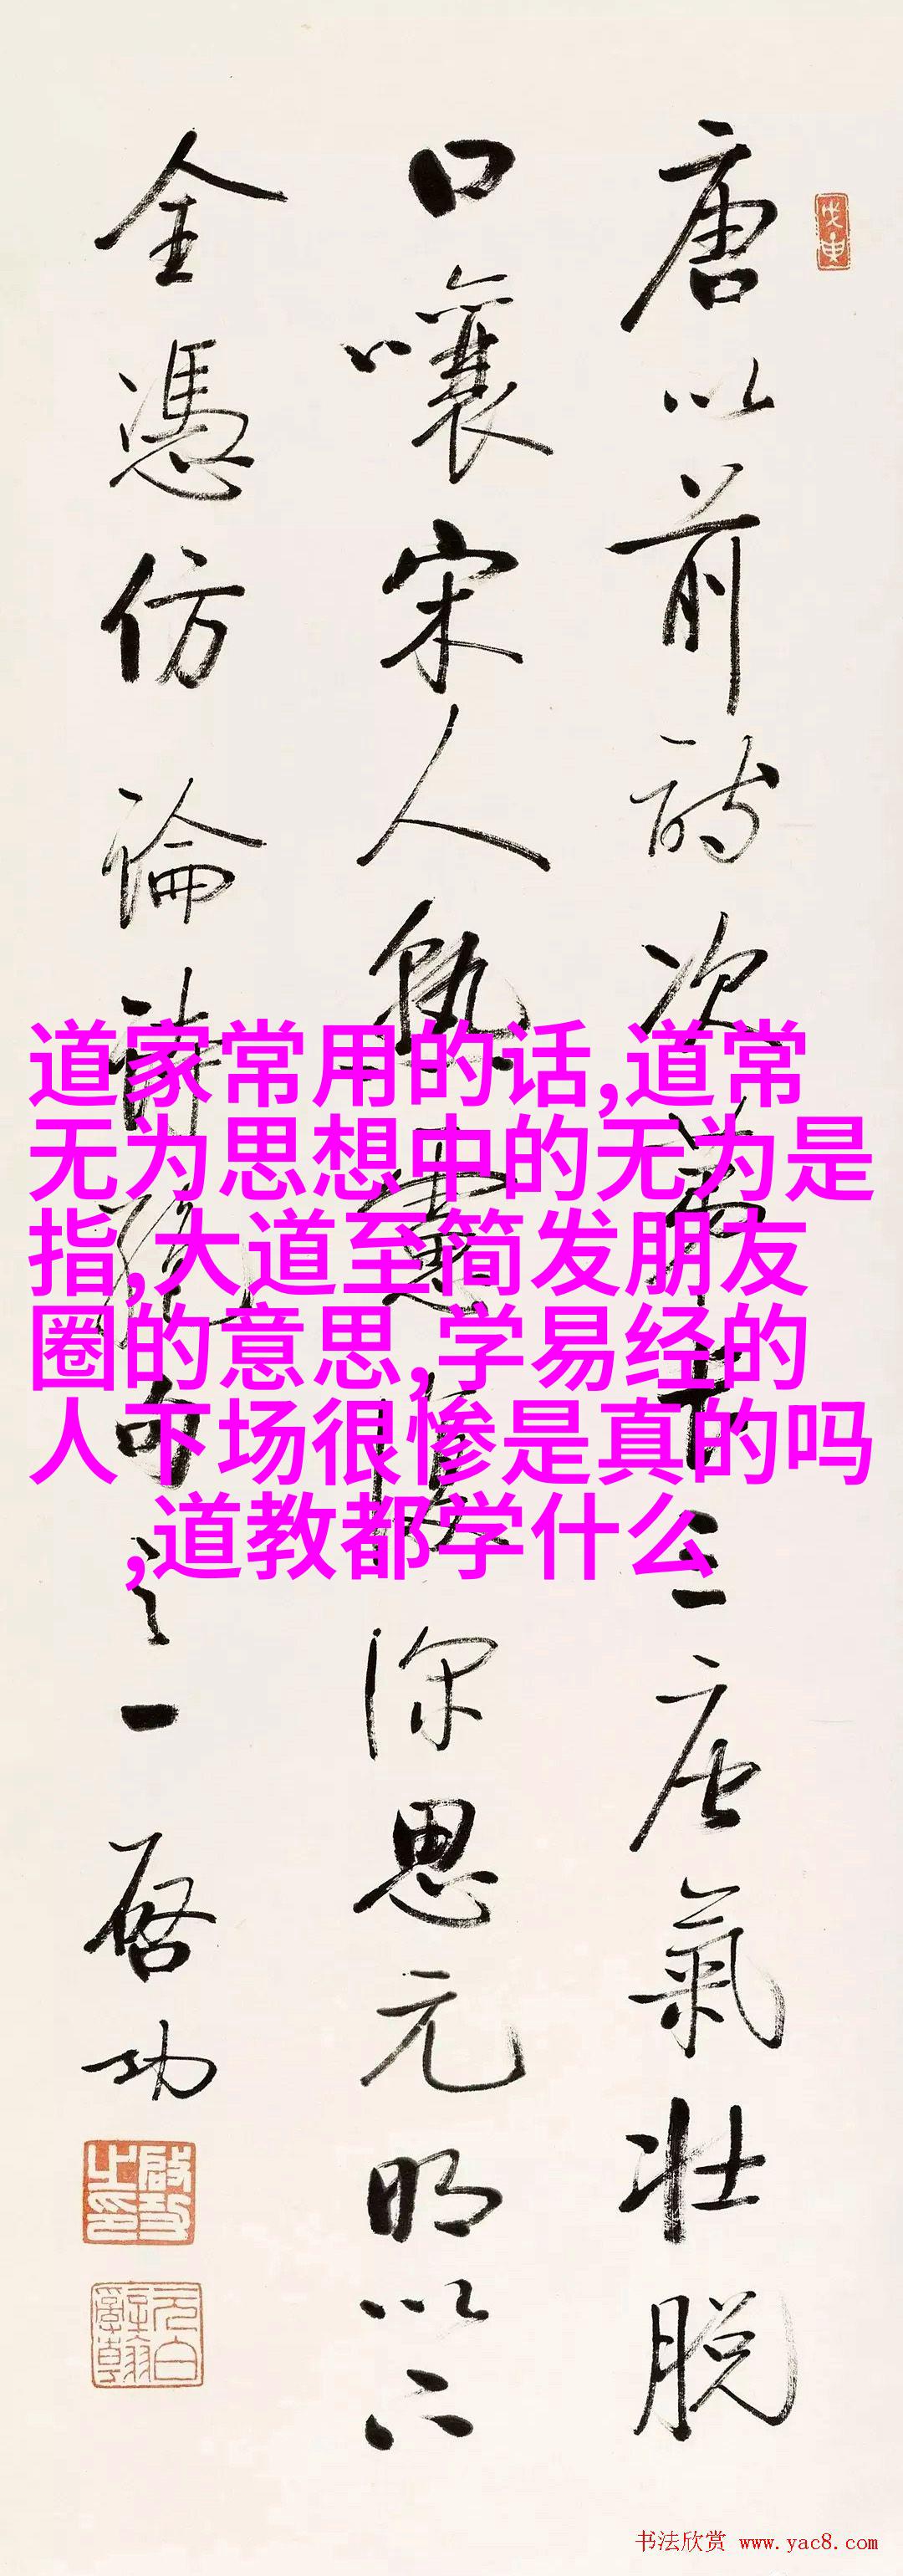 唐以前詩次第長三唐氣壯脱
口嚷宋人孰慮深思元明以下
全憑仿 論詩絕句之一 启功
道家常用的话,道常
无为思想中的无为是
指,大道至简发朋友
圈的意思,学易经的
人下场很惨是真的吗
,道教都学什么
书法欣赏 www.yac8.com